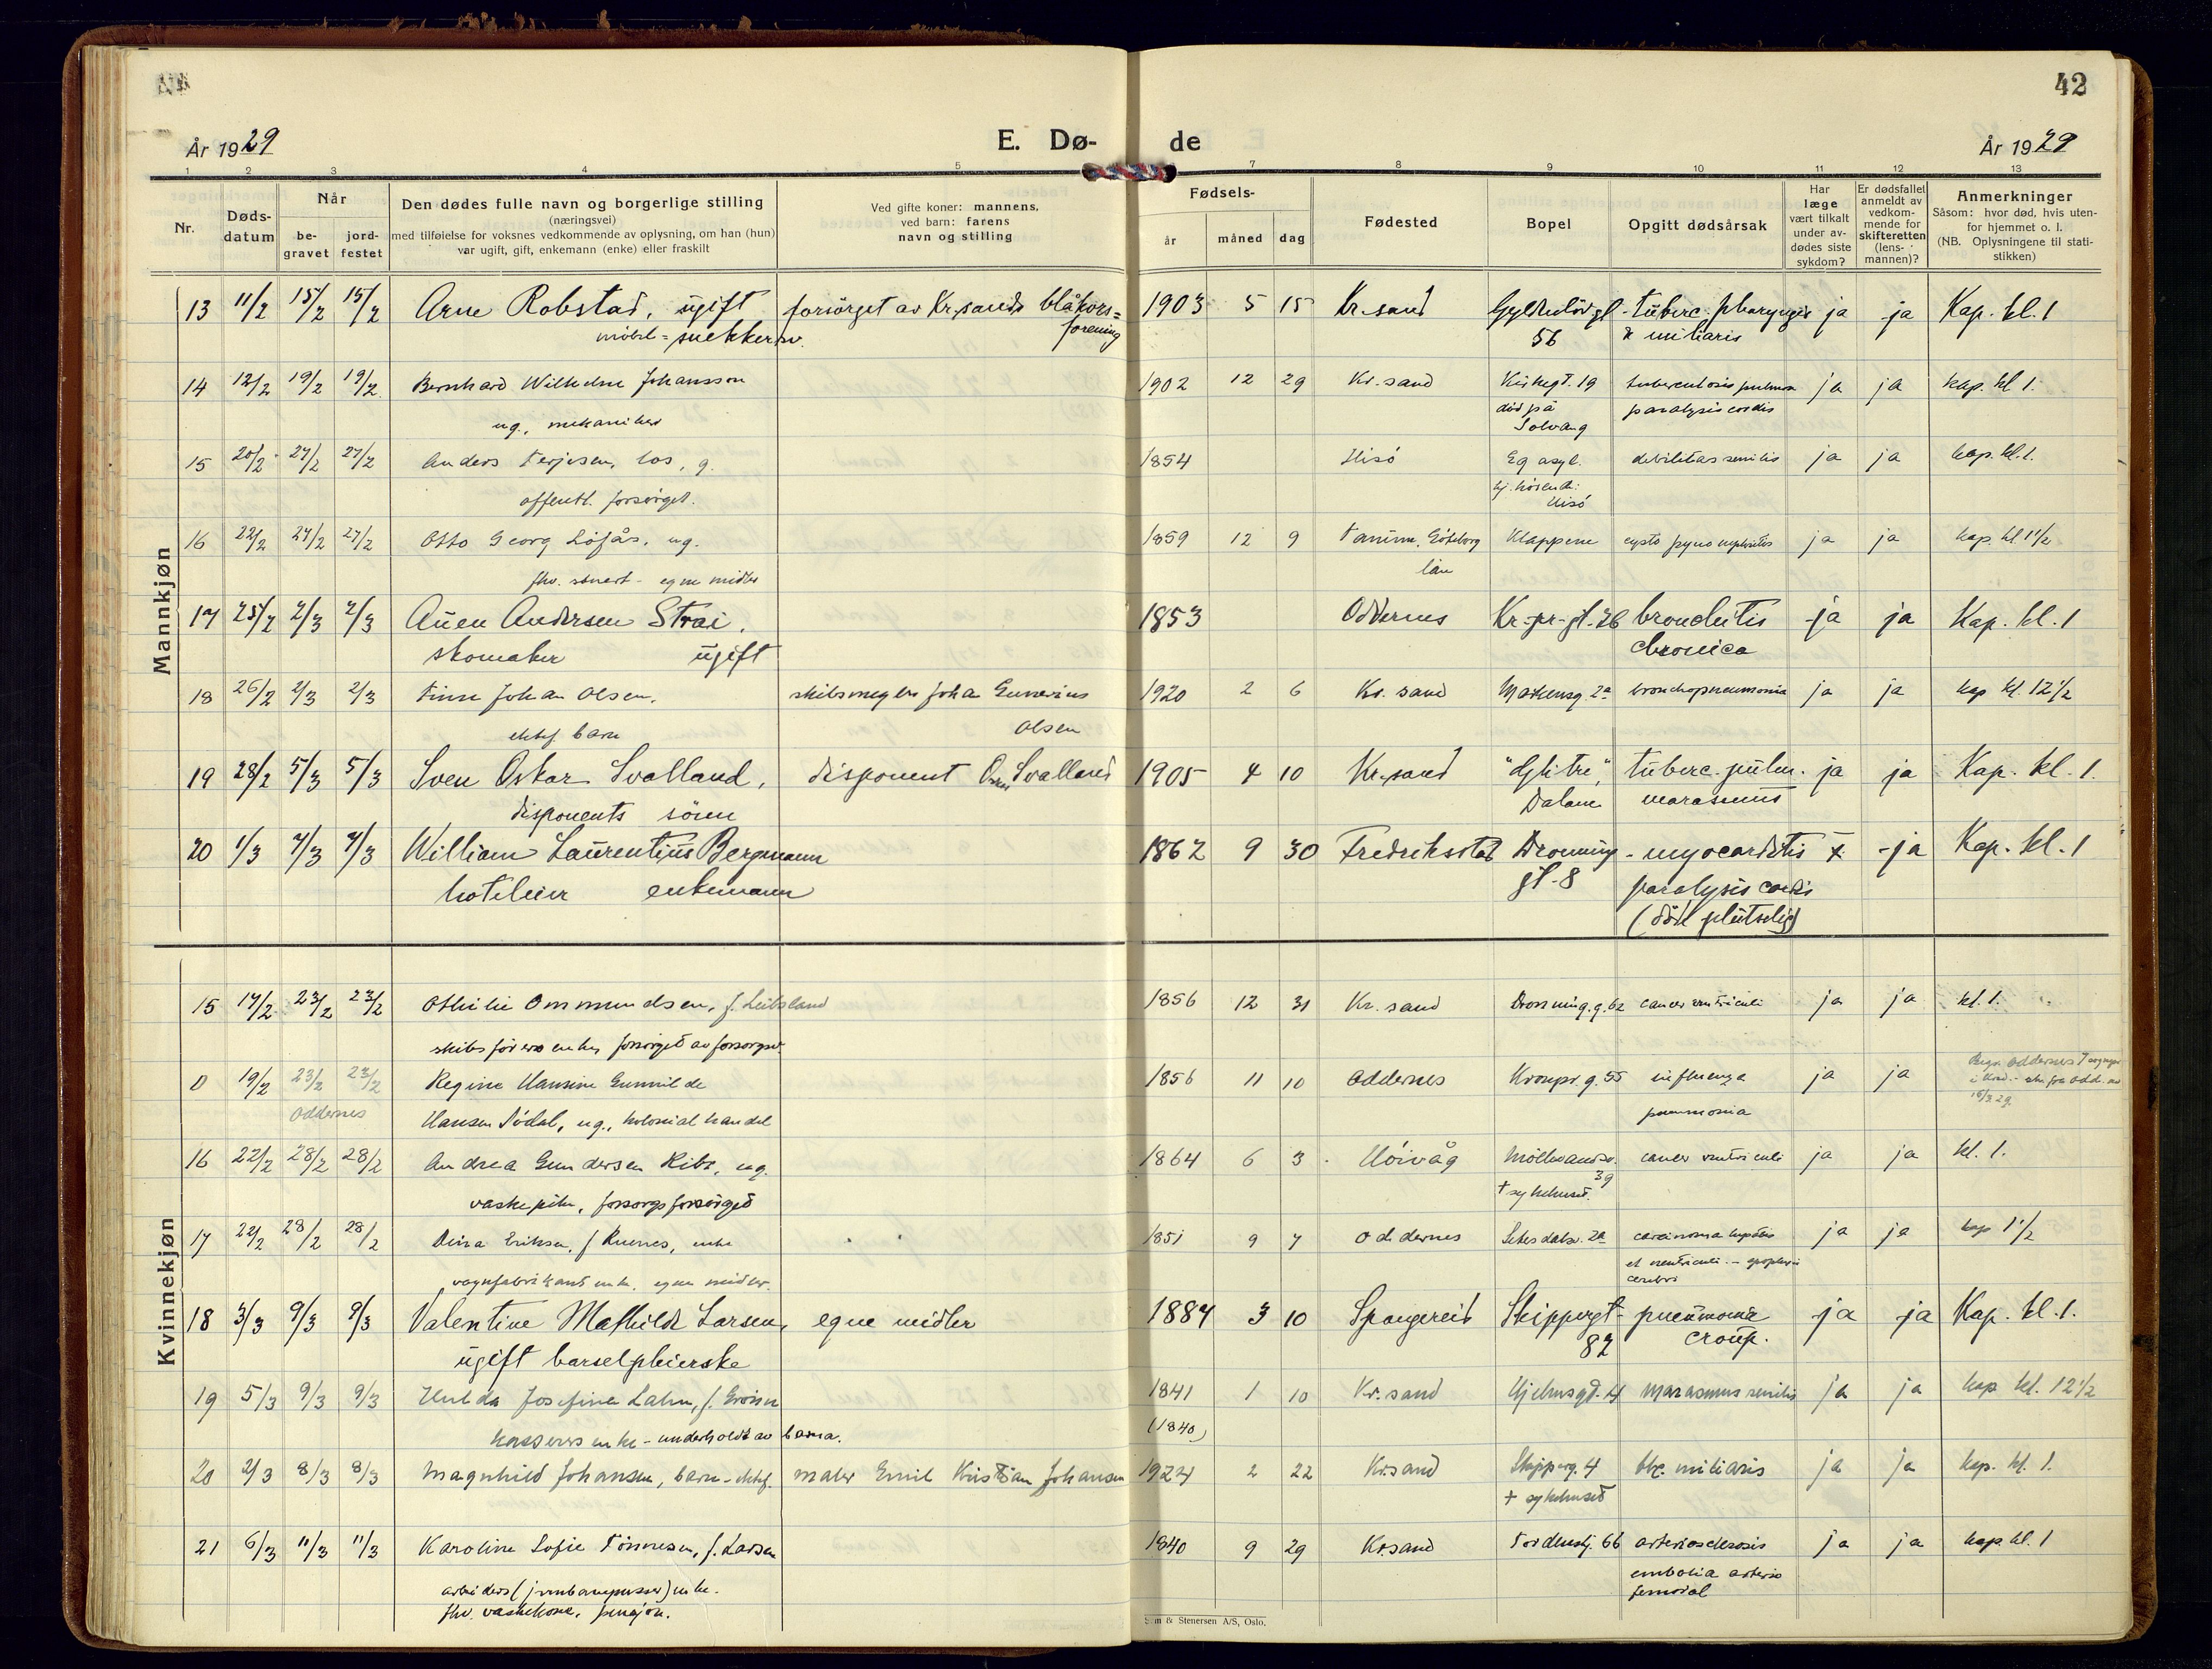 42
År 1929
E. Dø-
de
År 1929
1 2 3 4 5 7 8 9 10 11 12 13
Nr.
Døds-
datum
Når
be-
gravet
jord-
festet
Den dødes fulle navn og borgerlige stilling
(næringsvei)
med tilføielse for voksnes vedkommende av oplysning, om han (hun)
var ugift, gift, enkemann (enke) eller fraskilt
Ved gifte koner: mannens,
ved barn: farens
navn og stilling
Fødsels-
år måned dag
Fødested
Bopel
Opgitt dødsårsak
Har
læge
vært tilkalt
under av-
dødes siste
sykdom?
Er dødsfallet
anmeldt av
vedkom-
mende for
skifteretten
(lens-
mannen)?
Anmerkninger
Såsom: hvor død, hvis uten-
for hjemmet o. l.
(NB. Oplysningene til stati-
stikken)
Mannkjøn
13 11/2 15/2 15/2 Arne Robstad, ugift forsörget av Kr.sands blåkors= 1903 5 15 Kr.sand tuberc. pharyngis ja ja Kap. kl. 1
møbel=snekkersv. forening 56 & miliaris
14 12/2 19/2 19/2 Bernhard Wilhelm Johansson 1902 12 29 Kr.sand Kirkegt. 19 tuberculosis pulmon ja ja kap. kl 1.
ug., mekaniker død på paralysis cordis
Solvang
15 20/2 27/2 27/2 Anders Terjesen, los, g. 1854 Hisö Eg asyl. debilitas senilis ja ja kap. kl. 1.
offentl. forsörget. Hisö
16 22/2 27/2 27/2 Otto Georg Löfås, ug. 1859 12 9 Tanum, Göteborg Klappene cysto pyno nephritis ja ja kap. kl 1 1/2
fhv. stuert - egne midler län
17 25/2 2/3 2/3 Auen Andersen Strai, 1853 Oddernes Kr.-pr.-gt. 26 bronchitis ja ja Kap. kl. 1
skomaker ugift chronica
18 26/2 2/3 2/3 Finn Johan Olsen, skibsmegler Johan Gunerius 1920 2 6 Kr. sand Markensg. 2a bronchopneumonia ja ja kap kl. 12 1/2
ektef. barn Olsen
19 28/2 5/3 5/3 Sven Oskar Svalland, disponent Osk. Svalland 1905 4 10 Kr.sand "Glitre", tuberc. pulm. ja ja Kap. kl. 1.
disponents sönn Dalane marasmus
20 1/3 7/3 7/3 William Laurentius Bergmann 1862 9 30 Fredrikstad Dronning- myocarditis x ja Kap. kl. 1
hoteleier enkemann gt. 8 paralysis cordis
(död plutselig)
Kvinnekjøn
15 17/2 23/2 23/2 Othilie Ommundsen, f. Leibsland 1856 12 31 Kr. sand Dronning.g. 62 cancer ventriculi ja ja kl. 1.
skibsförers enke, forsörget av forsorgsv.
0 19/2 23/2 23/2 Regine Hansine Gunnilde 1856 11 10 Oddernes Kronpr.g. 55 influenza ja ja
Oddernes Hansen Södal, ug., kolonialhandel pneumonia
16 22/2 28/2 28/2 Andrea Gundersen Ribe, ug. 1864 6 3 Höivåg Möllevandsv. cancer ventriculi ja ja kl. 1.
vaskepike, forsorgsforsörget 39
+ sykehuset.
17 22/2 28/2 28/2 Dina Eriksen, f. Kuenes, enke 1851 9 7 Oddernes Setesdalsv. 2a carcinoma hepatis ja ja kap 1 1/2
vognfabrikant enke, egne midler. et ventriculi - apoplexia
cerebri
18 3/3 9/3 9/3 Valentine Mathilde Larsen, egne midler 1884 3 10 Spangereid Skippergt- pneumonia ja ja Kap. kl. 1.
ugift barselpleierske 82 croup.
19 5/3 9/3 9/3 Hulda Josefine Lahn, f. 1841 1 10 Kr.sand marasmus senilis ja ja kap kl. 12 1/2
kasserers enke - underholdt av barna. (1840)
20 2/3 8/3 8/3 Magnhild Johansen, barn - ektef. maler Emil Kristian Johansen 1924 2 22 Kr.sand Skipperg. 4 tbc. miliaris ja ja kap. kl. 1.
+ sykehuset
21 6/3 11/3 11/3 Karoline Sofie Tönnesen, f. Larsen 1840 9 29 Kr.sand Tordenskj. 66 arteriosclerosis ja ja kap. kl. 1
arbeiders (jernbanepusser) enke. embolia arteria
fhv. vaskekone, pensjon. femoral
& Stenersen A/S, Oslo.